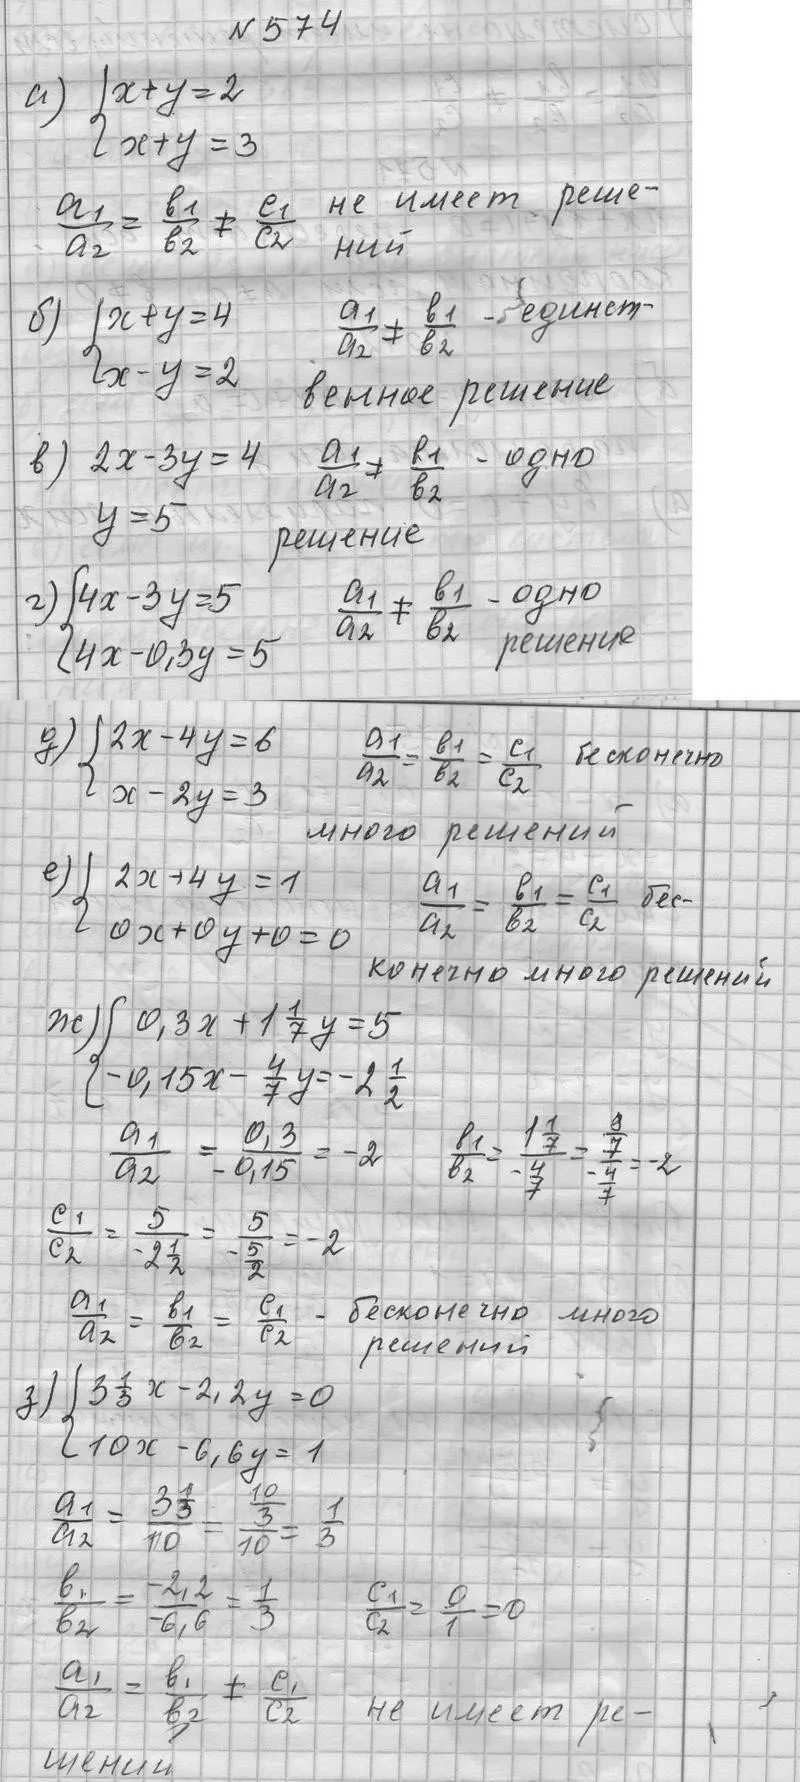 N 574
а) { x + y = 2
x + y = 3
a1/a2 = в1/в2 ≠ c1/c2 не имеет реше-
ний
б) { x + y = 4 a1/a2 ≠ в1/в2 - единст-
x - y = 2 венное решение
в) 2x - 3y = 4 a1/a2 ≠ в1/в2 - одно
y = 5 решение
г) { 4x - 3y = 5 a1/a2 ≠ в1/в2 - одно
4x - 0,3y = 5 решение
д) { 2x - 4y = 6 a1/a2 = в1/в2 = c1/c2 бесконечно
x - 2y = 3
много решений
е) { 2x + 4y = 1 a1/a2 = в1/в2 = c1/c2 бес-
0x + 0y + 0 = 0
конечно много решений
ж) { 0,3x + 1 1/7 y = 5
-0,15x - 4/7 y = -2 1/2
a1/a2 = 0,3/-0,15 = -2 в1/в2 = 1 1/7 / -4/7 = 8/7 / -4/7 = -2
c1/c2 = 5 / -2 1/2 = 5 / -5/2 = -2
a1/a2 = в1/в2 = c1/c2 - бесконечно много
решений
з) { 3 1/3 x - 2,2y = 0
10x - 6,6y = 1
a1/a2 = 3 1/3 / 10 = 10/3 / 10 = 1/3
в1/в2 = -2,2/-6,6 = 1/3 c1/c2 = 0/1 = 0
a1/a2 = в1/в2 ≠ c1/c2 не имеет ре-
шений